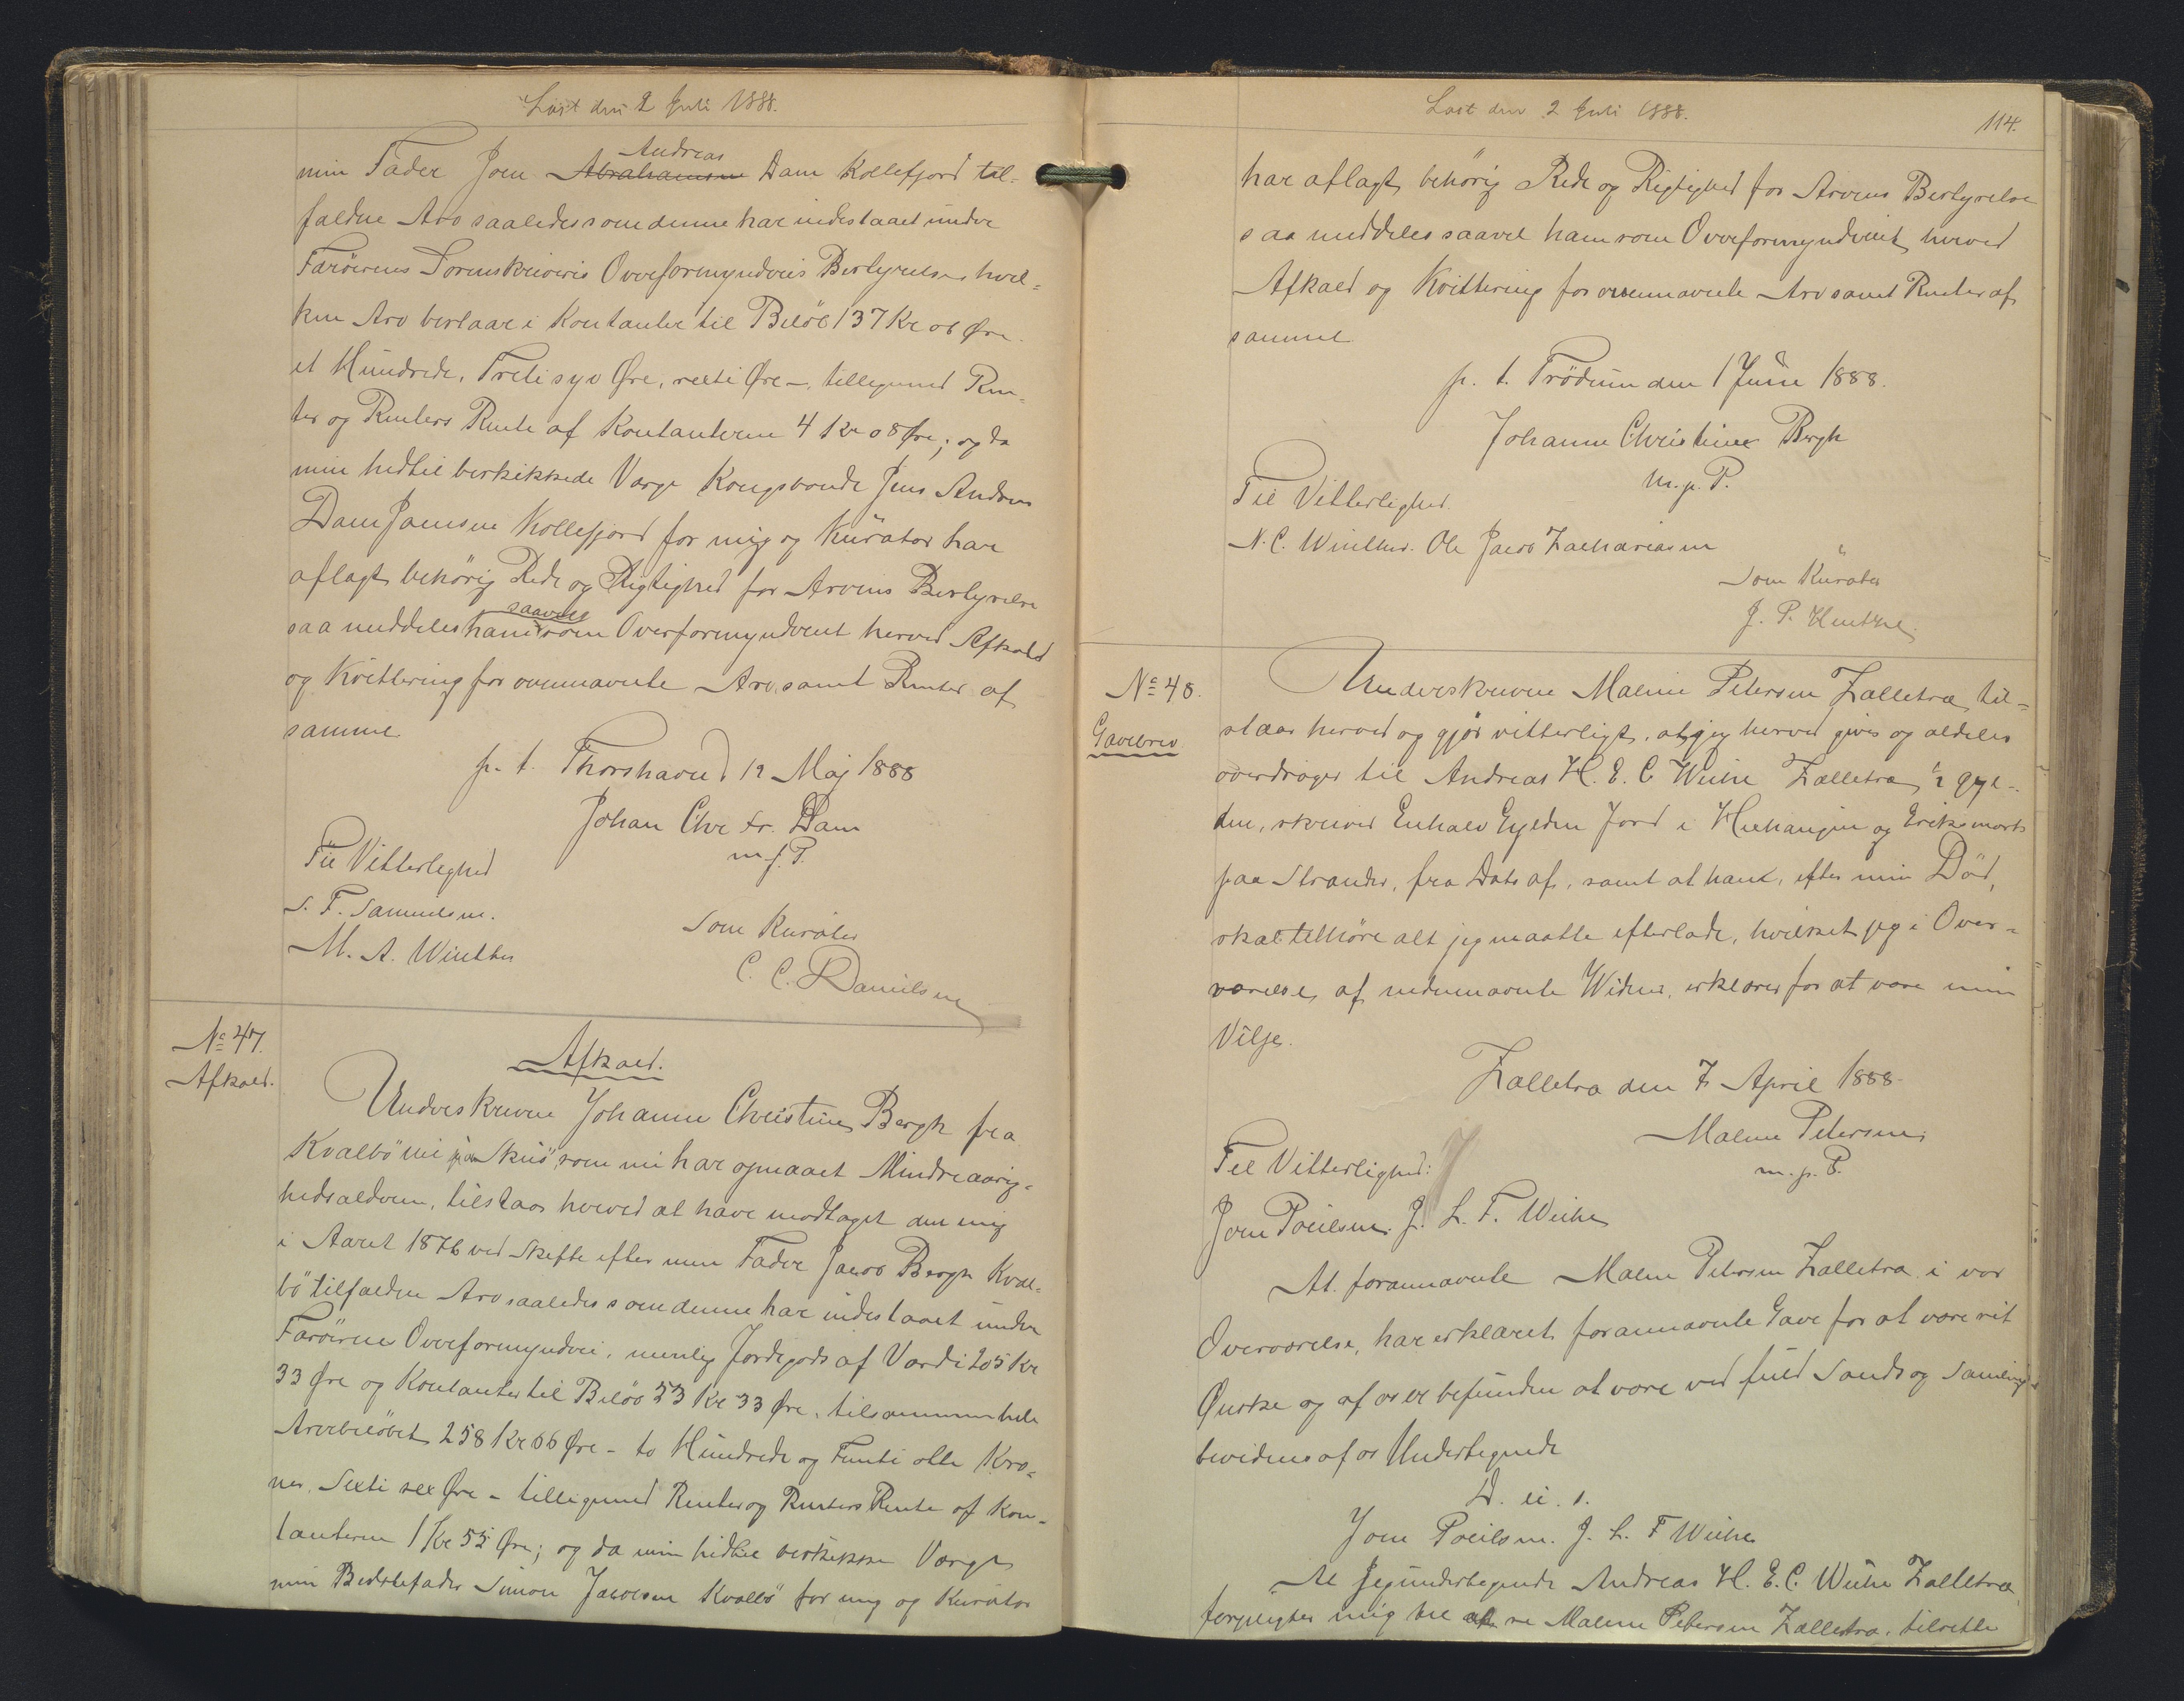 Læst den 2 Juli 1888.
min Fader Joen Abrahamsen Andreas Dam Kollefjord til-
faldne Arv saaledes som denne har indestaaet under
Færöernes Sorenskriveris Overformynderis Bestyrelse, hvil-
ken Arv bestaar i Kontanter til Belöb 137 Kr 06 Øre
et Hundrede, Treti syv Øre, sexti Øre –, tilligemed Ren-
ter og Renters Rente af Kontanterne 4 Kr 08 Øre; og da
min hidtil beskikkede Værge Kongsbonde Jens Andreas
Dam Joensen Kollefjord for mig og Kurator har
aflagt behörig Rede og Rigtighed for Arvens Bestyrelse
saa meddeles saavel ham som Overformynderiet herved Afkald
og Kvittering for ovennævnte Arv, samt Renter af
samme
p. t. Thorshavn d 12 Maj 1888
Johan Chr Fr. Dam
m. p. P.
Til Vitterlighed
S. F. Samuelsen.
M. A. Winther
Som Kurator
C. C. Danielsen
No 47.
Afkald.
Afkald.
Underskrevne Johanne Christine Bergh fra
Kvalbö nu paa Skuö, som nu har opnaaet Mindreaarig-
hedsalderen, tilstaar herved at have modtaget den mig
i Aaret 1876 ved Skifte efter min Fader Jacob Bergh Kval-
bö tilfaldne Arv saaledes som denne har indestaaet under
Færöernes Overformynderi, nemlig Jordegods af Værdi 205 Kr
33 Øre og Kontanter til Belöb 53 Kr 33 Øre, tilsammen hele
Arvebelöbet 258 Kr 66 Øre – to Hundrede og Femti otte Kro-
ner, Sexti sex Øre – tilligemed Renter og Renters Rente af Kon-
tanterne 1 Kr 55 Øre; og da min hidtil beskikkede Værge
min Bedstefader Simon Jacobsen Kvalbö for mig og Kurator
Læst den 2 Juli 1888.
114.
har aflagt behörig Rede og Rigtighed for Arvens Bestyrelse
saa meddeles saavel ham som Overformynderiet herved
Afkald og Kvittering for ovennævnte Arv samt Renter af
samme
p. t. Frödum den 1 Juni 1888.
Johanne Christine Bergh
m. p. P.
Til Vitterlighed.
N. C. Winther. Ole Jacob Zachariasen
Som Kurator
J. P.
No 48.
Gavebrev
Underskrevne Malene Petersen Zelletræ, til-
staar herved og gjör vitterligt, at jeg herved giver og aldeles
overdrager til Andreas H. E. C. Weihe Zelletræ, ½ Gyl-
den, skriver Enhalv Gylden Jord i og
paa Strander, fra Dato af, samt at ham, efter min Död,
skal tilhöre alt jeg maatte efterlade, hvilket jeg i Over-
værelse af nedennævnte Vidner, erklærer for at være min
Vilje.
Zelletræ den 7 April 1888.
Malene Petersen
m. p. P.
Til Vitterlighed:
Joen Poulsen. J. L. F. Weihe
At forannævnte Malene Petersen Zelletræ i vor
Overværelse, har erklæret forannævnte Gave for at være sit
Ønske og af os er befunden at være ved fuld Sands og Samling
bevidnes af os Undertegnede
D. u. s.
Joen Poulsen. J. L. F Weihe
At Jeg undertegnede Andreas H. E. C. Weihe Zelletræ
forpligter mig til at se Malene Petersen Zelletræ, tilrette